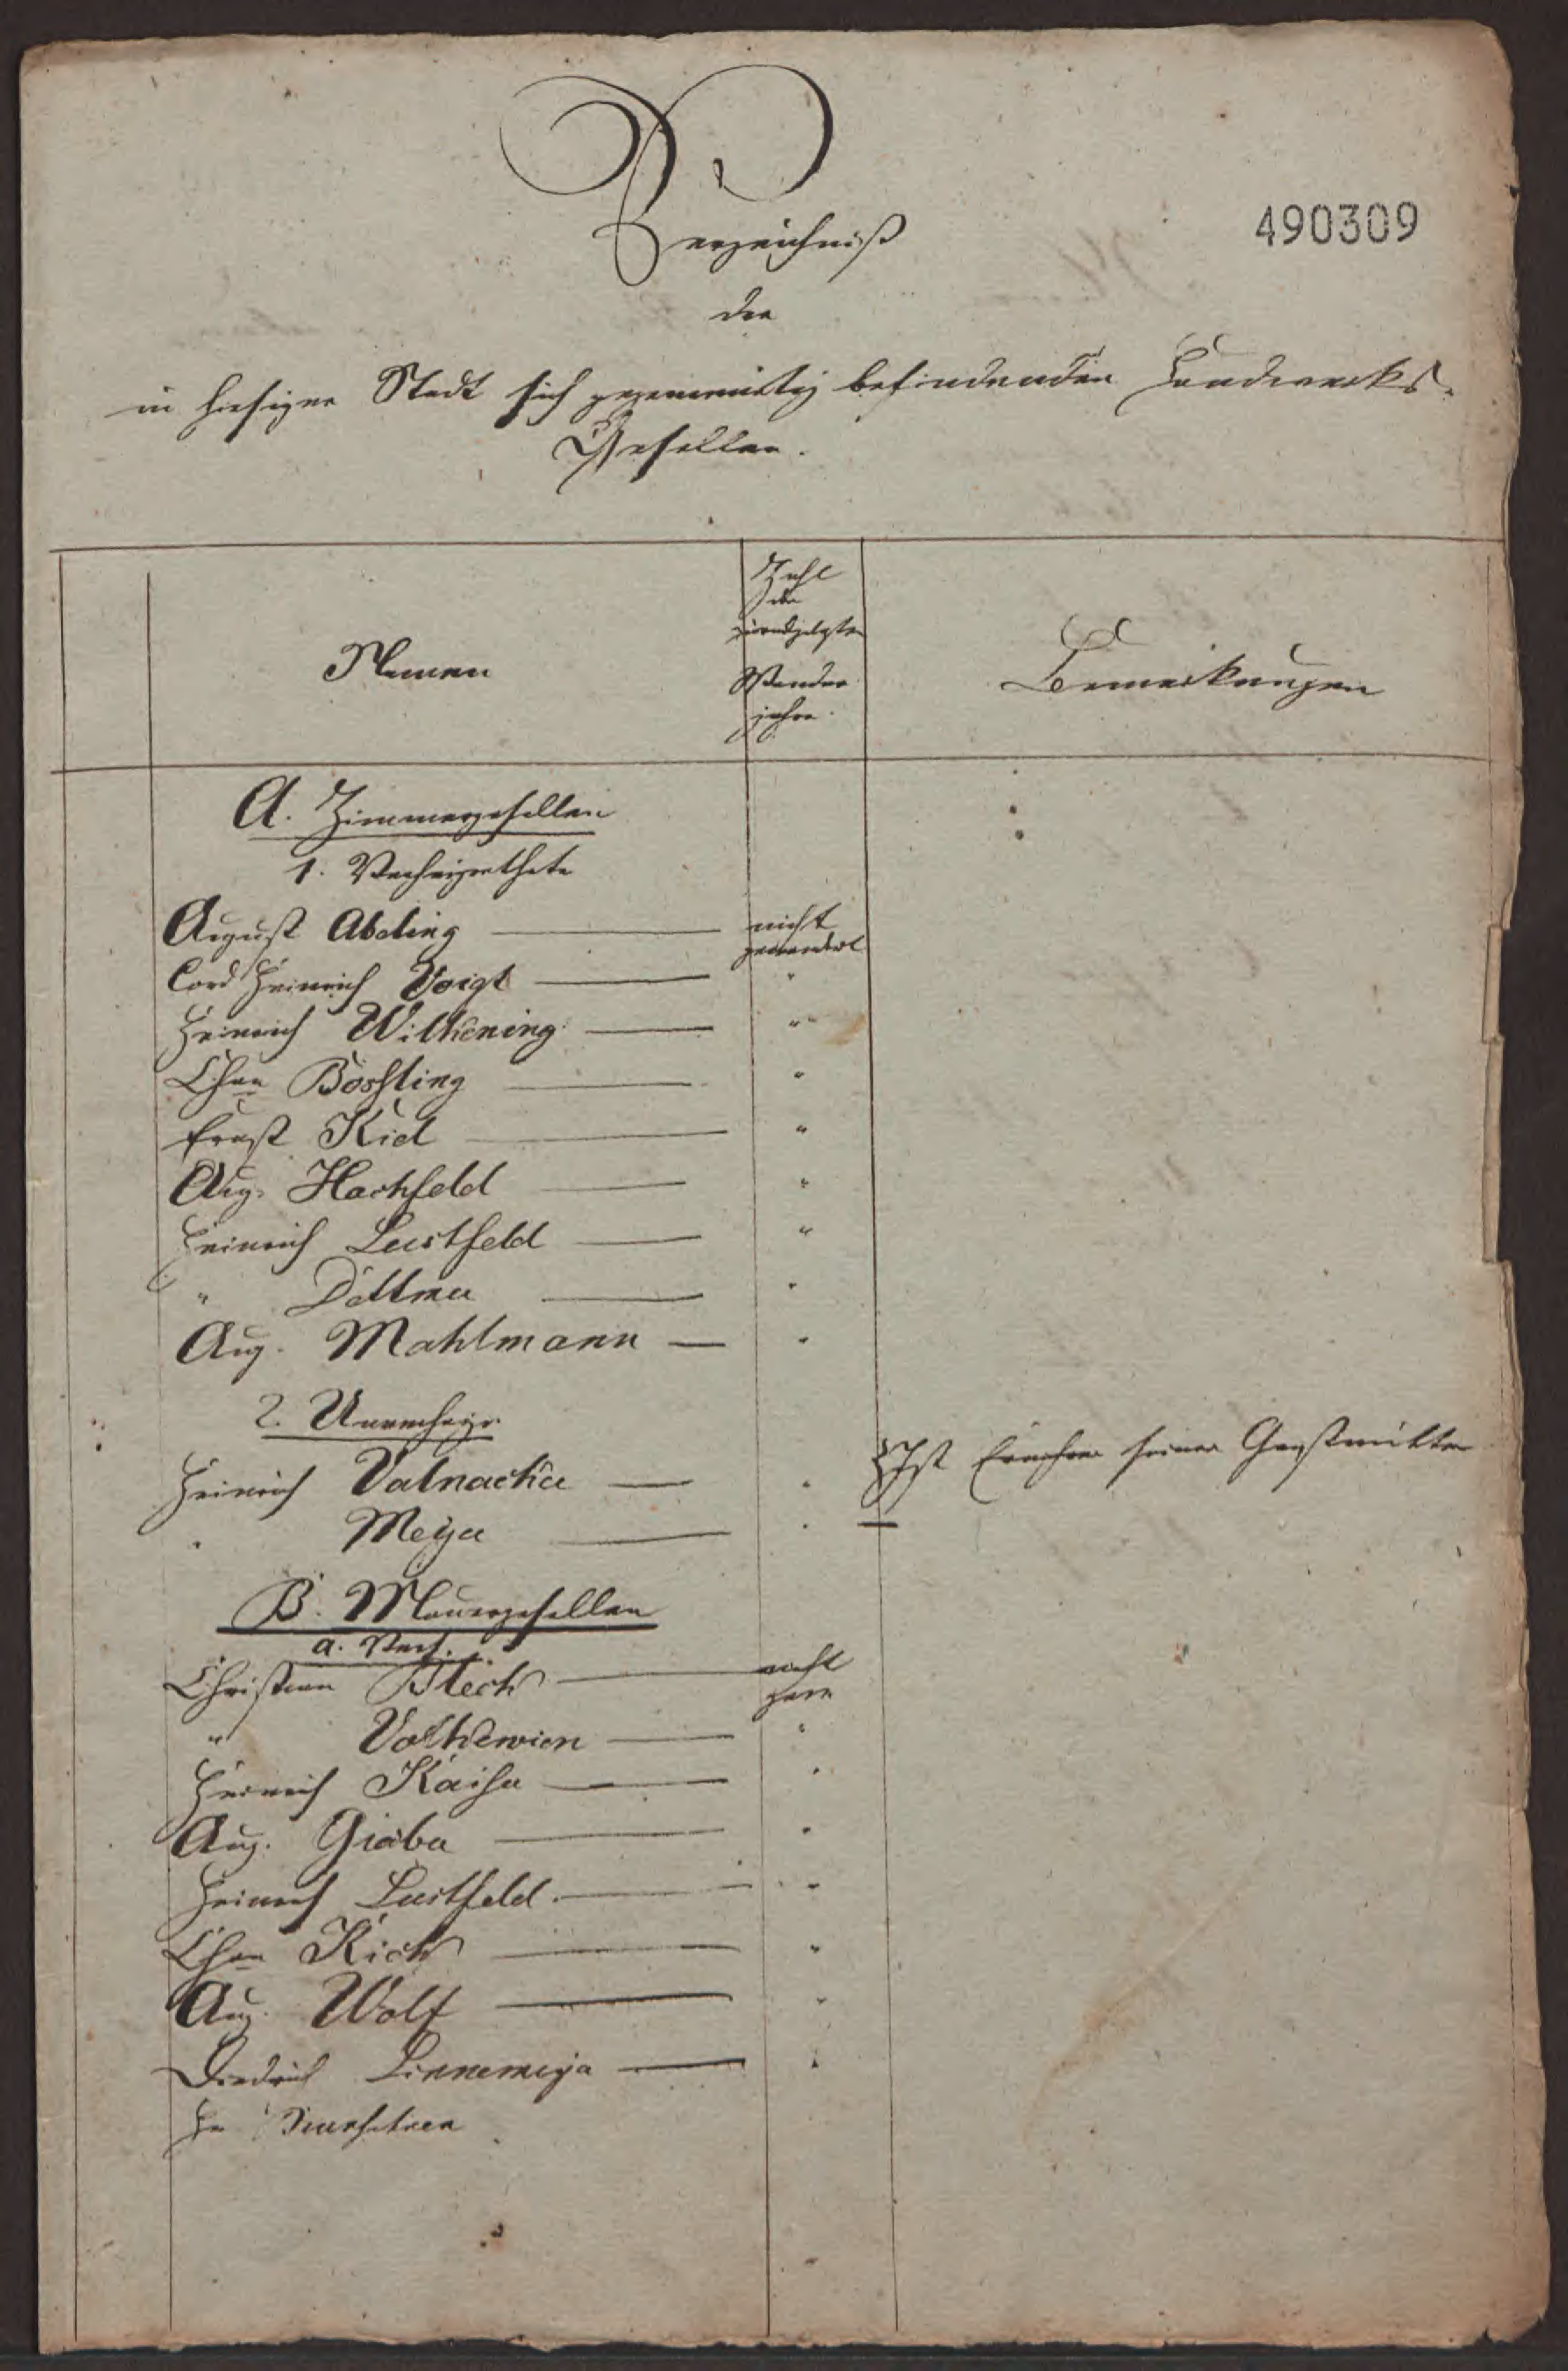 Verzeichniß
490309
der
in hiesiger Stadt sich gegenwärtig befindenden Handwerks-
Gesellen.
Namen
Zahl
der
zurückgelegten
Wander
jahre.
Bemerkungen
A. Zimmergesellen
1. Verheirathete
August Abeling — nicht
gewandert
Cord Heinrich Voigt — "
Heinrich Wilkening — "
Chrn Bösling — "
Ernst Kiel — "
Aug. Hachfeld — "
Heinrich Lustfeld — "
" Dettmer — "
Aug. Mahlmann — "
2. Unverheir.
Heinrich Valnacker — " Ist Ernährer seiner Großmutter
" Meyer — " —
B. Mauergesellen
a. Verh.
Christian Blech — nicht
gew
" Volkewien — "
Heinrich Kaiser — "
Aug. Giebe — "
Heinrich Lustfeld. — "
Chrn Rick — "
Aug. Wolf — "
Diedrich Linnemeyer — "